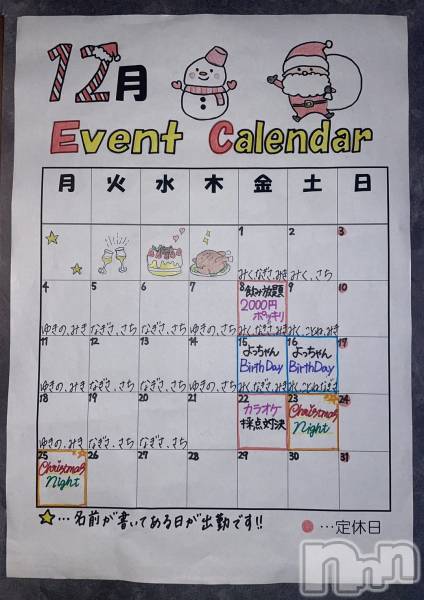 12月
Event Calendar
月 火 水 木 金 土 日
1 2 3
みく、なぎさ、みき みく、さち
4 5 6 7 8 9 10
飲み放題
2000円
ポッキリ
ゆきの、みき なぎさ、さち なぎさ、さち ゆきの、さち みく、なぎさ、みき みく、ことね、みき
11 12 13 14 15 16 17
よっちゃん BirthDay よっちゃん BirthDay
ゆきの、みき なぎさ、さち なぎさ、さち ゆきの、さち みく、なぎさ、みき みく、ことね、なぎさ
18 19 20 21 22 23 24
カラオケ
採点対決
Christmas
Night
ゆきの、みき なぎさ、さち なぎさ、さち
25 26 27 28 29 30 31
Christmas
Night
…名前が書いてある日が出勤です!!
…定休日
nmn